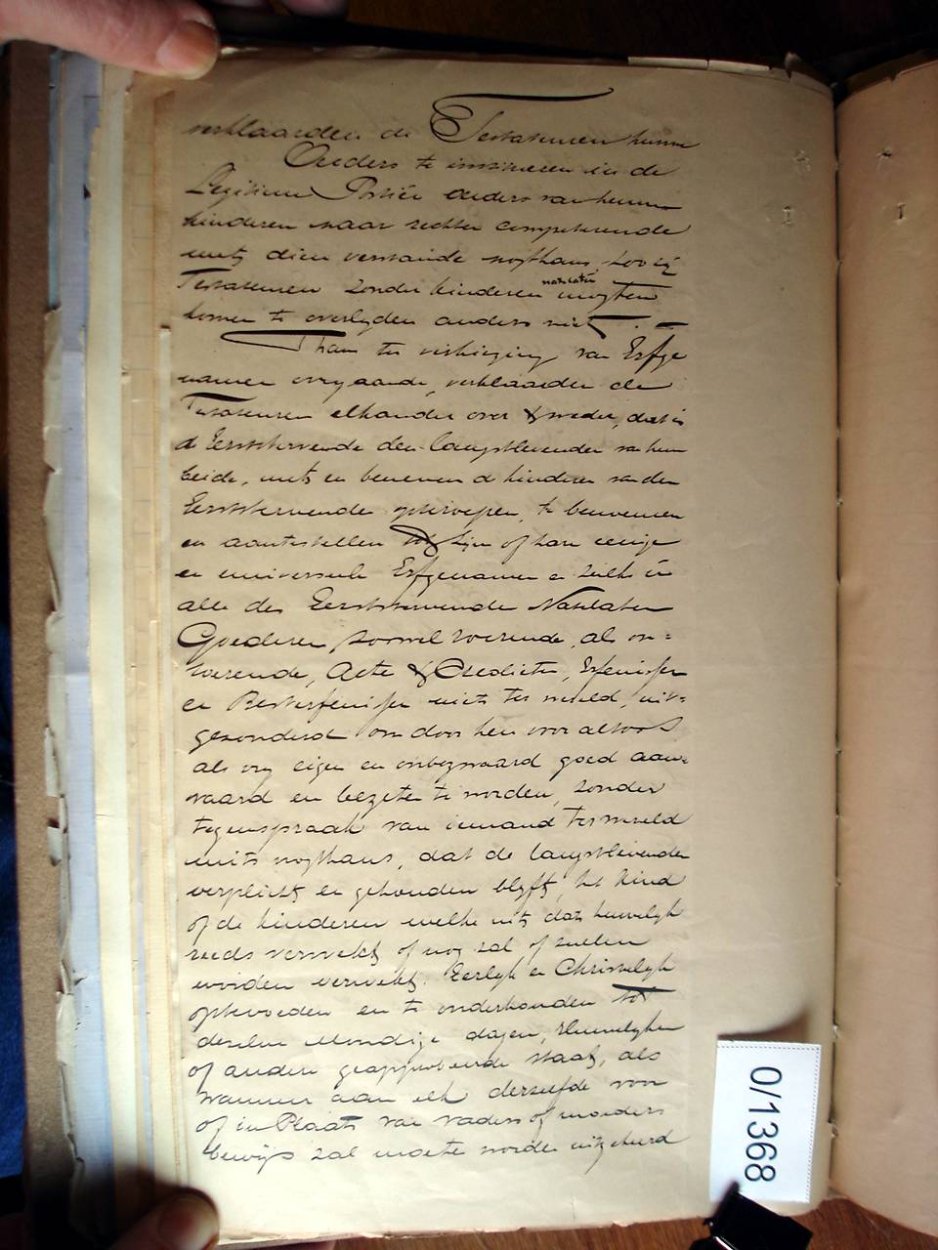 verklaarden de Testateuren hunne
Ouders te institueren in de
Legitieme Portie ouders van hunne
kinderen naar rechten competerende
mits dien verstande nogthans zoo zij
Testateuren zonder kinderen natelaten mogten
komen te overlyden anders niet.
Thans ter verkiezing van Erfge
namen overgaande, verklaarden de
Testateuren elkander over & weder, dat is
de Eerststervende den Langstlevenden van hun
beide, mits en beneven de kinderen van den
Eerststervende geroepen, te benoemen
en aantestellen tot zijn of hare eenige
en universeele Erfgenamen en zulks in
alle des Eerststervende Natelaten
Goederen, zoowel roerende, als on=
roerende, Actie & Credieten, Erfenissen
en Besterfenissen niets ter wereld, uit=
gezonderd om door hen voor altoos
als vry eigen en onbezwaard goed aan=
vaard en bezeten te worden, zonder
tegenspraak van iemand ter wereld
mits nogthans, dat de langstlevende
verplicht en gehouden blyft, het kind
of de kinderen welke uit dat huwelyk
reeds verwekt of nog zal of zullen
worden verwekt. Eerlyk en Christelyk
optevoeden en te onderhouden tot
derzelver Mondige dagen, Huwelyken
of andere geapprobeerde staat, als
wanneer aan elk derzelfde voor
of in Plaats van vaders of moeders
bewijs zal moeten worden uitgekeerd
0/1368